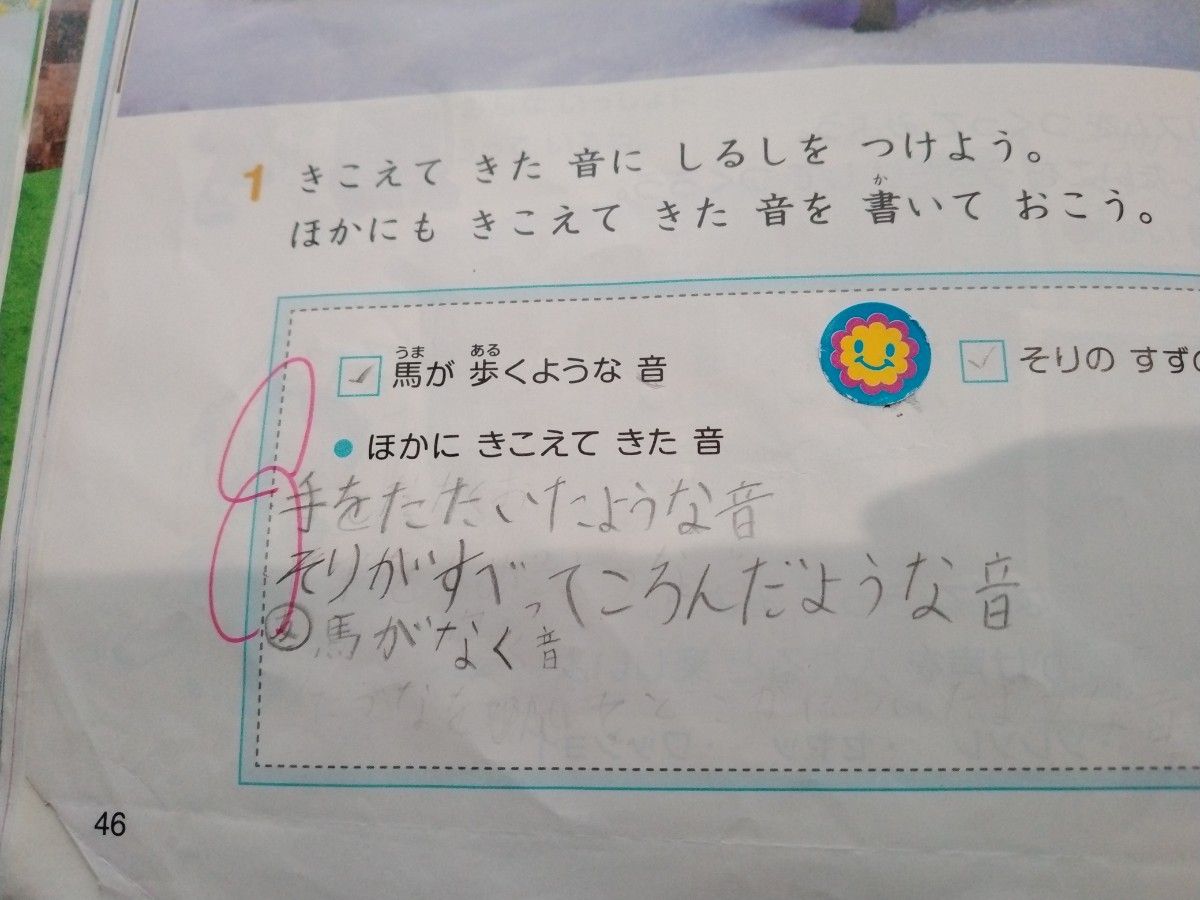 1 きこえて きた 音に しるしを つけよう。
か
ほかにも きこえて きた 音を 書いて おこう。
うま ある
馬が 歩くような 音
そりの すずの
ほかに きこえて きた 音
手をたたいたような音
そりがすべってころんだような音
馬がなく音
46